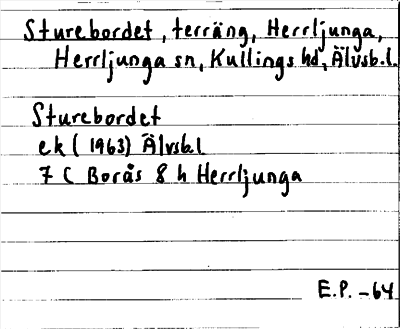 Sturebordet, terräng, Herrljunga,
Herrljunga sn, Kullings hd, Älvsb.l.
Sturebordet
ek (1963) Älvsb.l
7 C Borås 8 h Herrljunga
E.P. -64